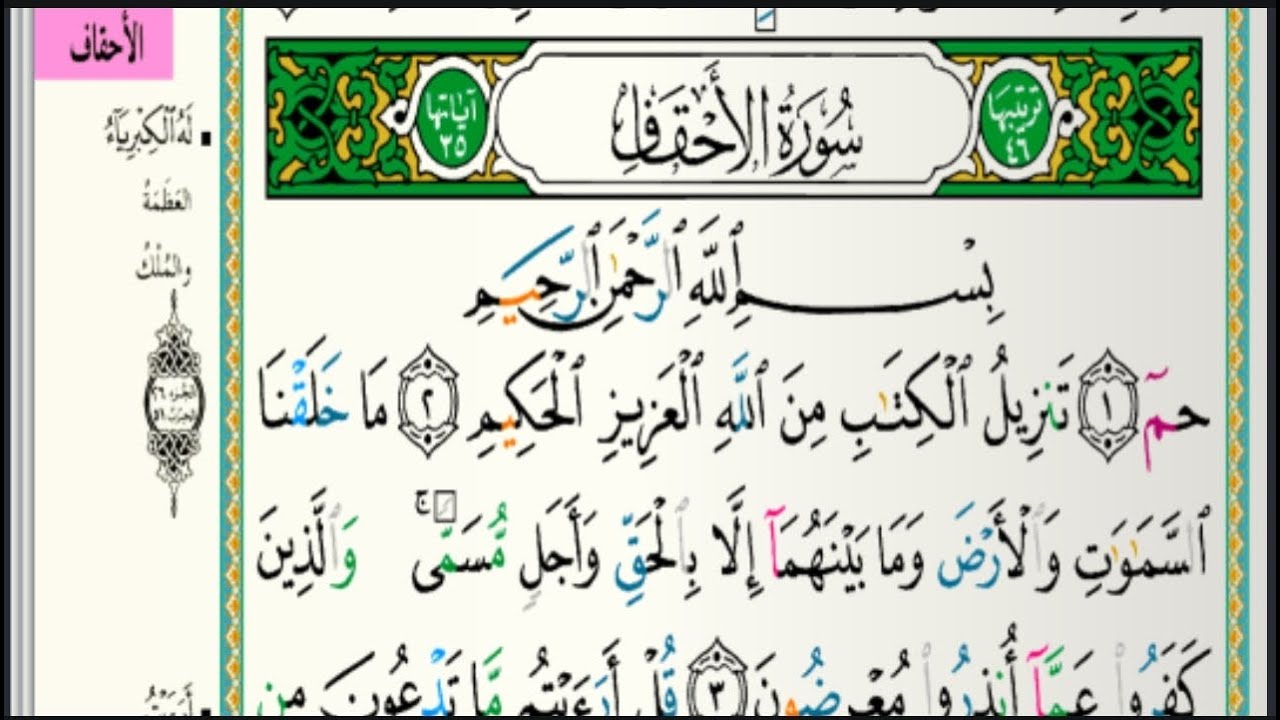 الأحقاف
ترتيبها ٤٦
سُورَةُ الأَحْقَافِ
آياتها ٣٥
بِسْمِ ٱللَّهِ ٱلرَّحْمَٰنِ ٱلرَّحِيمِ
حمٓ ١ تَنزِيلُ ٱلْكِتَٰبِ مِنَ ٱللَّهِ ٱلْعَزِيزِ ٱلْحَكِيمِ ٢ مَا خَلَقْنَا
ٱلسَّمَٰوَٰتِ وَٱلْأَرْضَ وَمَا بَيْنَهُمَآ إِلَّا بِٱلْحَقِّ وَأَجَلٍ مُّسَمًّى ۚ وَٱلَّذِينَ
كَفَرُوا۟ عَمَّآ أُنذِرُوا۟ مُعْرِضُونَ ٣ قُلْ أَرَءَيْتُم مَّا تَدْعُونَ مِن
لَهُ ٱلْكِبْرِيَآءُ
العَظَمَةُ
والمُلْكُ
الجزء ٢٦
الحزب ٥١